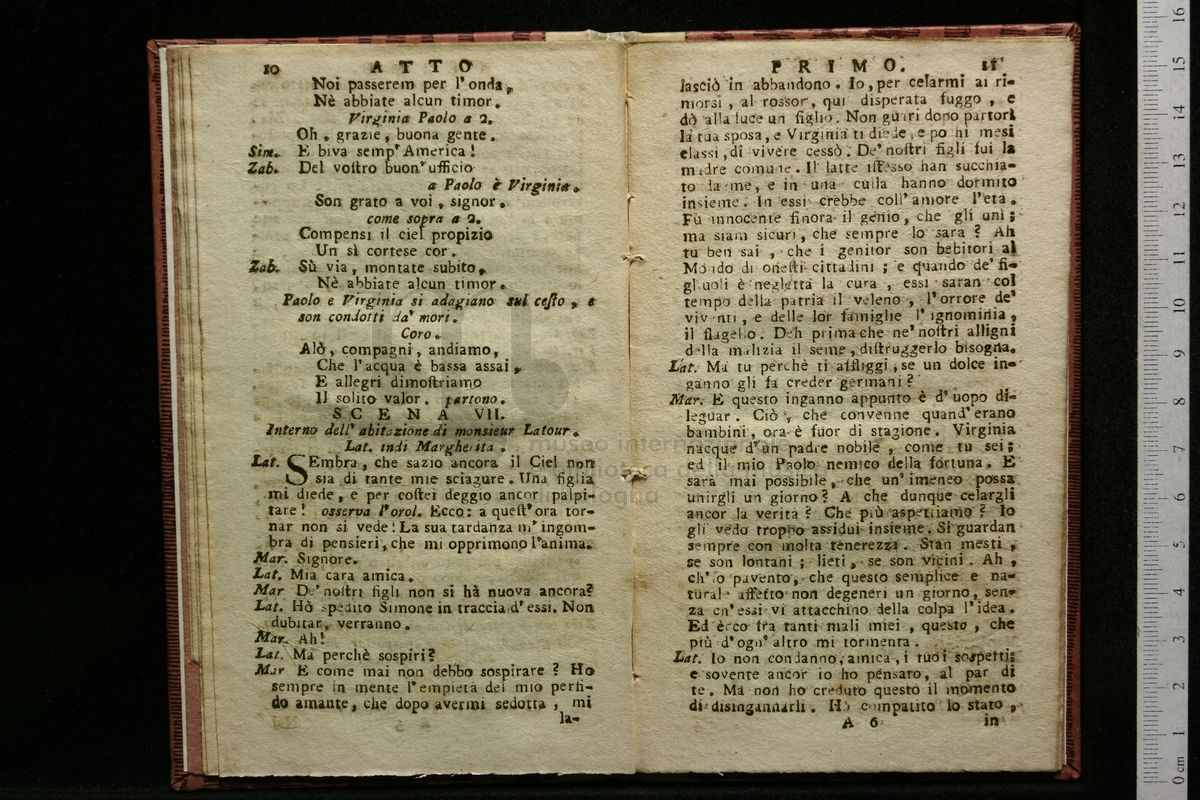 10 ATTO
Noi passerem per l'onda,
Nè abbiate alcun timor.
Virginia Paolo a 2.
Oh, grazie, buona gente.
Sim. E biva semp' America!
Zab. Del vostro buon' ufficio
a Paolo è Virginia.
Son grato a voi, signor.
come sopra a 2.
Compensi il ciel propizio
Un sì cortese cor.
Zab. Sù via, montate subito,
Nè abbiate alcun timor.
Paolo e Virginia si adagiano sul cesto, e
son condotti da' mori.
Coro.
Alò, compagni, andiamo,
Che l'acqua è bassa assai,
E allegri dimostriamo
Il solito valor. partono.
SCENA VII.
Interno dell' abitazione di monsieur Latour.
Lat. indi Margherita.
Lat. SEmbra, che sazio ancora il Ciel non
sia di tante mie sciagure. Una figlia
mi diede, e per costei deggio ancor palpi-
tare! osserva l'orol. Ecco: a quest' ora tor-
nar non si vede! La sua tardanza m' ingom-
bra di pensieri, che mi opprimono l'anima.
Mar. Signore.
Lat. Mia cara amica.
Mar De' nostri figli non si hà nuova ancora?
Lat. Hò spedito Simone in traccia d' essi. Non
dubitar, verranno.
Mar. Ah!
Lat. Ma perchè sospiri?
Mar E come mai non debbo sospirare? Ho
sempre in mente l'empietà del mio perfi-
do amante, che dopo avermi sedotta, mi
la-
PRIMO. 11
lasciò in abbandono. Io, per celarmi ai ri-
morsi, al rossor, qui disperata fuggo, e
dò alla luce un figlio. Non guari dopo partorì
la tua sposa, e Virginia ti diede, e po hi mesi
elassi, di vivere cessò. De' nostri figli fui la
madre comune. Il latte istesso han succhia-
to da me, e in una culla hanno dormito
insieme. In essi crebbe coll' amore l'età.
Fù innocente finora il genio, che gli unì;
ma siam sicuri, che sempre lo sarà? Ah
tu ben sai, che i genitor son bebitori al
Mondo di onesti cittadini; e quando de' fi-
gliuoli è negletta la cura, essi saran col
tempo della patria il veleno, l'orrore de'
viventi, e delle lor famiglie l'ignominia,
il flagello. Deh prima che ne' nostri alligni
della malizia il seme, distruggerlo bisogna.
Lat. Ma tu perchè ti affliggi, se un dolce in-
ganno gli fa creder germani?
Mar. E questo inganno appunto è d' uopo di-
leguar. Ciò, che convenne quand' erano
bambini, ora è fuor di stagione. Virginia
nacque d' un padre nobile, come tu sei;
ed il mio Paolo nemico della fortuna. E
sarà mai possibile, che un' imeneo possa
unirgli un giorno? A che dunque celargli
ancor la verità? Che più aspettiamo? Io
gli vedo troppo assidui insieme. Si guardan
sempre con molta tenerezza. Stan mesti,
se son lontani; lieti, se son vicini. Ah,
ch' io pavento, che questo semplice e na-
turale affetto non degeneri un giorno, sen-
za ch' essi vi attacchino della colpa l'idea.
Ed ecco fra tanti mali miei, questo, che
più d'ogn' altro mi tormenta.
Lat. Io non condanno, amica, i tuoi sospetti;
e sovente ancor io ho pensato, al par di
te. Ma non ho creduto questo il momento
di disingannarli. Hò compatito lo stato,
A 6 in
museo internazionale